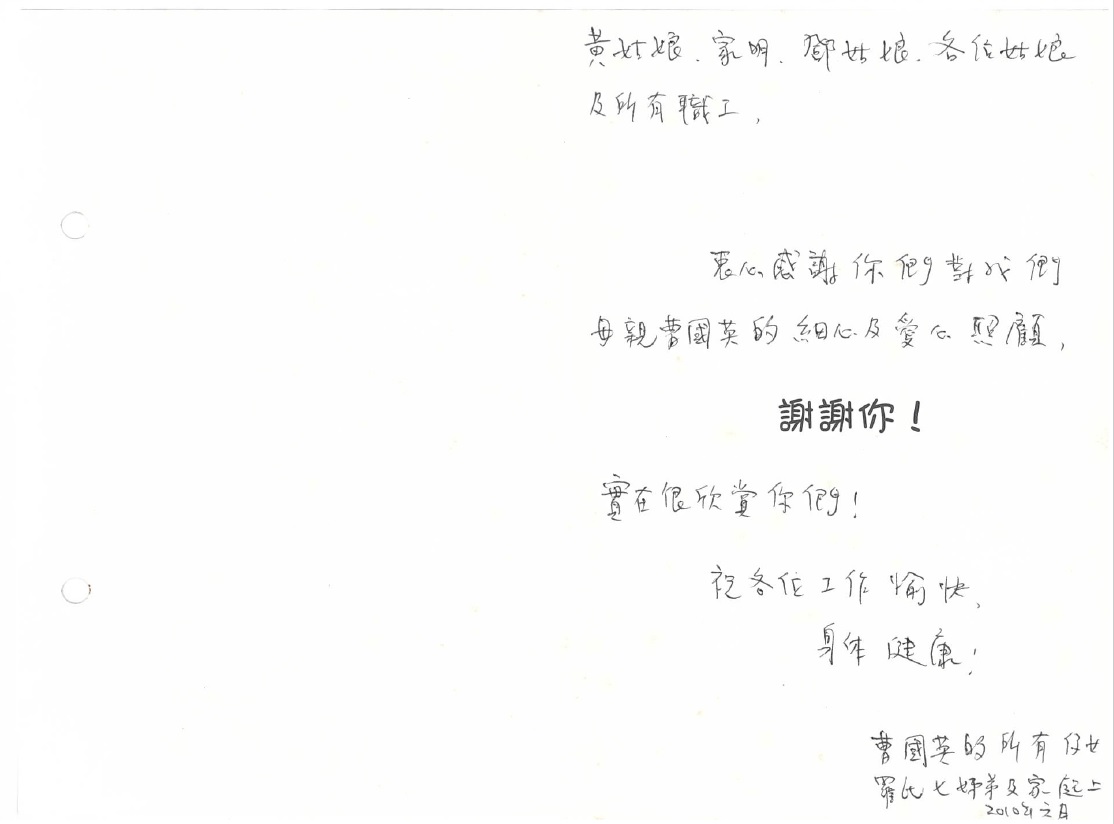 黃姑娘、家明、鄧姑娘、各位姑娘
及所有職工,
衷心感謝你們對我們
母親曹國英的細心及愛心照顧,
謝謝你!
實在很欣賞你們!
祝各位工作愉快、
身体健康!
曹國英的所有仔女
羅氏七姊弟及家庭上
2010年六月